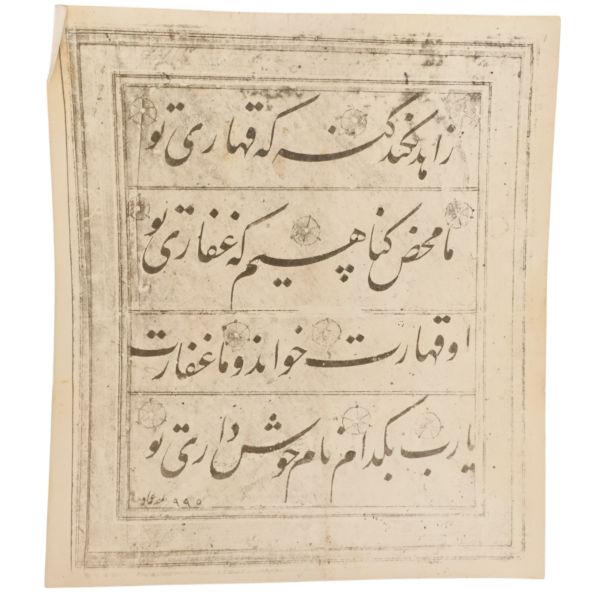 زاهد نکند گنه که قهاری تو
ما محض گناهیم که غفاری تو
او قهارت خواند و ما غفارت
یارب بکدام نام خوش داری تو
۹۹۵